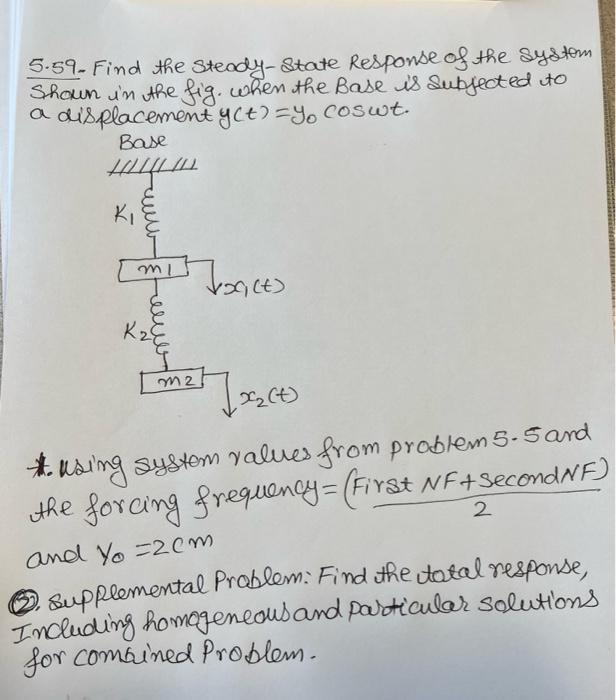 5.59- Find the Steady-State Response of the System
Shown in the fig. when the Base is Subjected to
a displacement y(t) = y₀ cos wt.
Base
K₁
m1
x₁(t)
K₂
m2
x₂(t)
*. using system values from problem 5.5 and
the forcing frequency = (First NF + Second NF)
2
and Y₀ = 2cm
②. Supplemental Problem: Find the total response,
Including homogeneous and particular solutions
for combined Problem.